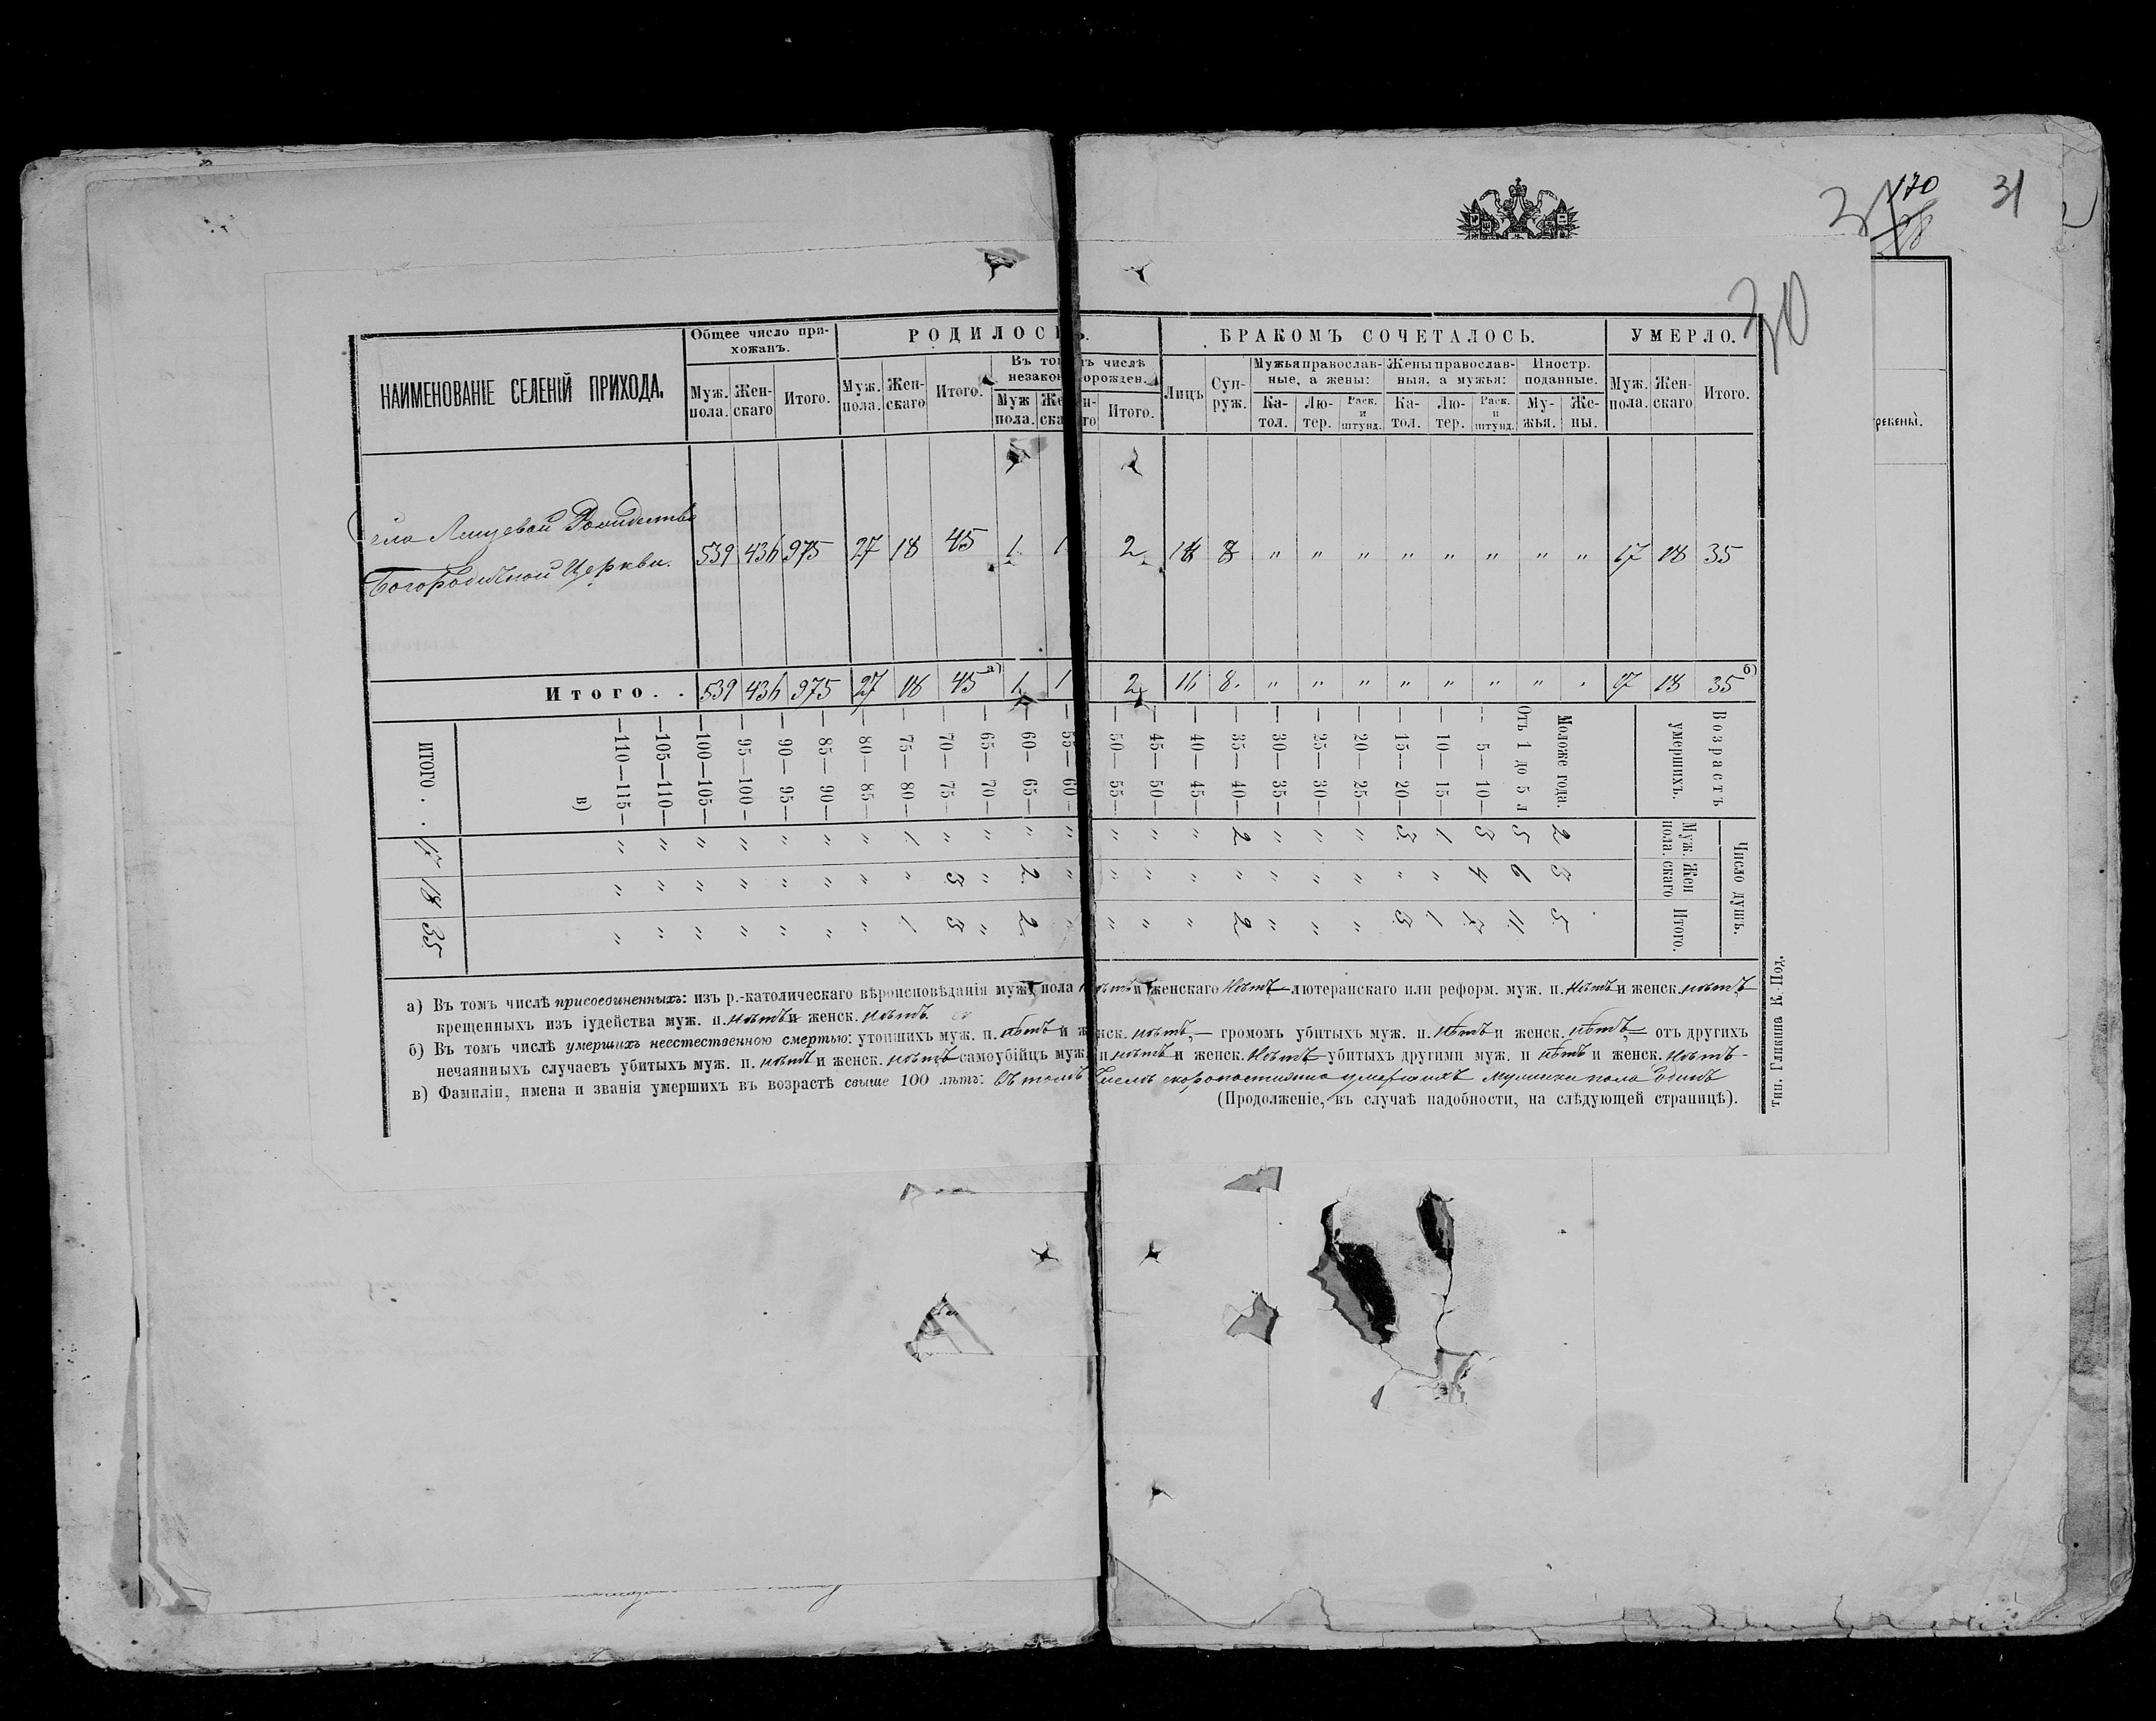 170
31
30
НАИМЕНОВАНІЕ СЕЛЕНІЙ ПРИХОДА.
Общее число при-
хожанъ.
РОДИЛОСЬ.
БРАКОМЪ СОЧЕТАЛОСЬ.
УМЕРЛО.
Муж. пола.
Жен- скаго
Итого.
Муж. пола.
Жен- скаго
Итого.
Въ томъ числѣ
незаконнорожден.
Муж пола.
Жен- скаго
Итого.
Лицъ
Суп- руж.
Мужья православ-
ные, а жены:
Ка- тол.
Лю- тер.
Раск. и штунд.
Жены православ-
ныя, а мужья:
Ка- тол.
Лю- тер.
Раск. и штунд.
Иностр.
поданные.
Му- жья.
Же- ны.
Муж. пола.
Жен- скаго
Итого.
рекены.
Села Рождество
Богородичной Церкви.
539 436 975 27 18 45 1 1 2 16 8 " " " " " " " " 17 18 35
Итого. . 539 436 975 27 18 45 а) 1 1 2 16 8. " " " " " " " . 17 18 35 б)
Возрастъ
умершихъ.
Число душъ.
Муж. пола.
Жен скаго
Итого.
Моложе года. 2 3 5.
Отъ 1 до 5 л 5 6 11.
— 5— 10— 3 4 7.
— 10— 15— 1 " 1.
— 15— 20— 3. " 3.
— 20— 25— " " "
— 25— 30— " " "
— 30— 35— " " "
— 35— 40— 2 " 2
— 40— 45— " " "
— 45— 50— " " "
— 50— 55— " " "
— 55— 60— " " "
— 60— 65— " 2. 2.
— 65— 70— " " "
— 70— 75— " 3 3
— 75— 80— 1. " 1.
— 80— 85— " " "
— 85— 90— " " "
— 90— 95— " " "
— 95—100— " " "
—100—105— " " "
—105—110— " " "
—110—115— " " "
в)
ИТОГО . . 17 18 35
а) Въ томъ числѣ присоединенныхъ: изъ р.-католическаго вѣроисповѣданія муж. пола нѣтъ и женскаго нѣтъ — лютеранскаго или реформ. муж. п. нѣтъ и женск. нѣтъ,
крещенныхъ изъ іудейства муж. п. нѣтъ и женск. нѣтъ.
б) Въ томъ числѣ умершихъ неестественною смертью: утопшихъ муж. п. нѣтъ и женск. нѣтъ, — громомъ убитыхъ муж. п. нѣтъ и женск. нѣтъ, — отъ другихъ
нечаянныхъ случаевъ убитыхъ муж. п. нѣтъ и женск. нѣтъ, самоубійцъ муж. п нѣтъ и женск. нѣтъ — убитыхъ другими муж. п нѣтъ и женск. нѣтъ -
в) Фамиліи, имена и званія умершихъ въ возрастѣ свыше 100 лѣтъ: Въ томъ числѣ скоропостижно умершихъ мужеска пола Одинъ
(Продолженіе, въ случаѣ надобности, на слѣдующей страницѣ).
Тип. Гликина К.-Под.